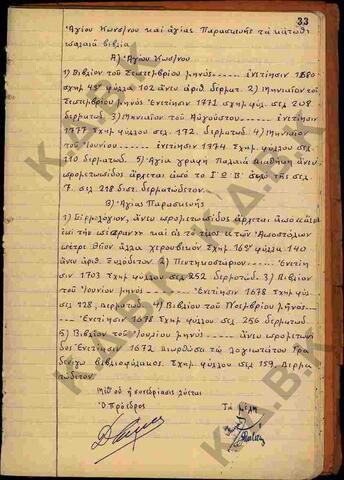 33
Ἁγίου Κων/νου καὶ ἁγίας Παρασκευῆς τὰ κάτωθι
παλαιὰ βιβλία
Α) Ἁγίου Κων/νου
1) Βιβλίον τοῦ Σεπτεμβρίου μηνὸς ἐνετίησιν 1680
σχῆμ 4ον φύλλο 102 ἄνευ ἀριθ. δερματ. 2) Μηνιαῖον τοῦ
Σεπτεμβρίου μηνὸς Ἐνετίησιν 1771 σχῆμ φύλ. σελ 208
δερματωδ. 3) Μηνιαῖον τοῦ Αὐγούστου ἐνετίησιν
1777 Σχῆμ φύλλο σελ. 172. δερματωδ. 4) Μηνιαῖον
τοῦ Ἰουνίου ἐνετίησιν 1774 Σχῆμ. φύλλου σελ
110 δερματωδ. 5) Ἁγία γραφὴ Παλαιὰ Διαθήκη ἄνευ
προμετωπίδος ἄρχεται ἀπὸ τὸ Γ΄ Β΄ Β΄ ἀπὸ τῆς σελ.
7. σελ. 218 διστ. δερματόδετον.
Β) Ἁγίας Παρασκευῆς
1) Εἱρμολόγιον, ἄνευ προμετωπίδος ἄρχεται ἀπὸ
καὶ εἰς τὸ τέλος Ἀποστόλων
ἀλλὰ χερουβικὸν Σχῆμ. 16ον φύλλα 140
ἄνευ ἀριθ. Ξυλόδετον. 2) Πεντηκοστάριον Ἐνετίη
σιν 1703 Σχῆμ φύλλου σελ 252 δερματωδ. 3) Βιβλίον
τοῦ Ἰουνίου μηνὸς Ἐνετίησιν 1678 Σχῆμ φύλλου
σελ 128, Δερματωδ. 4) Βιβλίον τοῦ Νοεμβρίου μηνὸς
Ἐνετίησιν 1678 Σχῆμ φύλλου σελ 256 δερματωδ.
5) Βιβλίον τοῦ Ἰουλίου μηνὸς ἄνευ προμετωπί
δος Ἐνετίησιν 1672 Διωρθώσει τοῦ λογιωτάτου Γρα
δενίγου Βιβλιοφύλακος. Σχῆμ φύλλου σελ 159, Δερμα
τόδετον.
Μεθ' ὃ ἡ συνεδρίασις λύεται
Ὁ Πρόεδρος Τὰ μέλη
Κ.Δ.Β.Κ
Κ.Δ.Β.Κ
Κ.Δ.Β.Κ